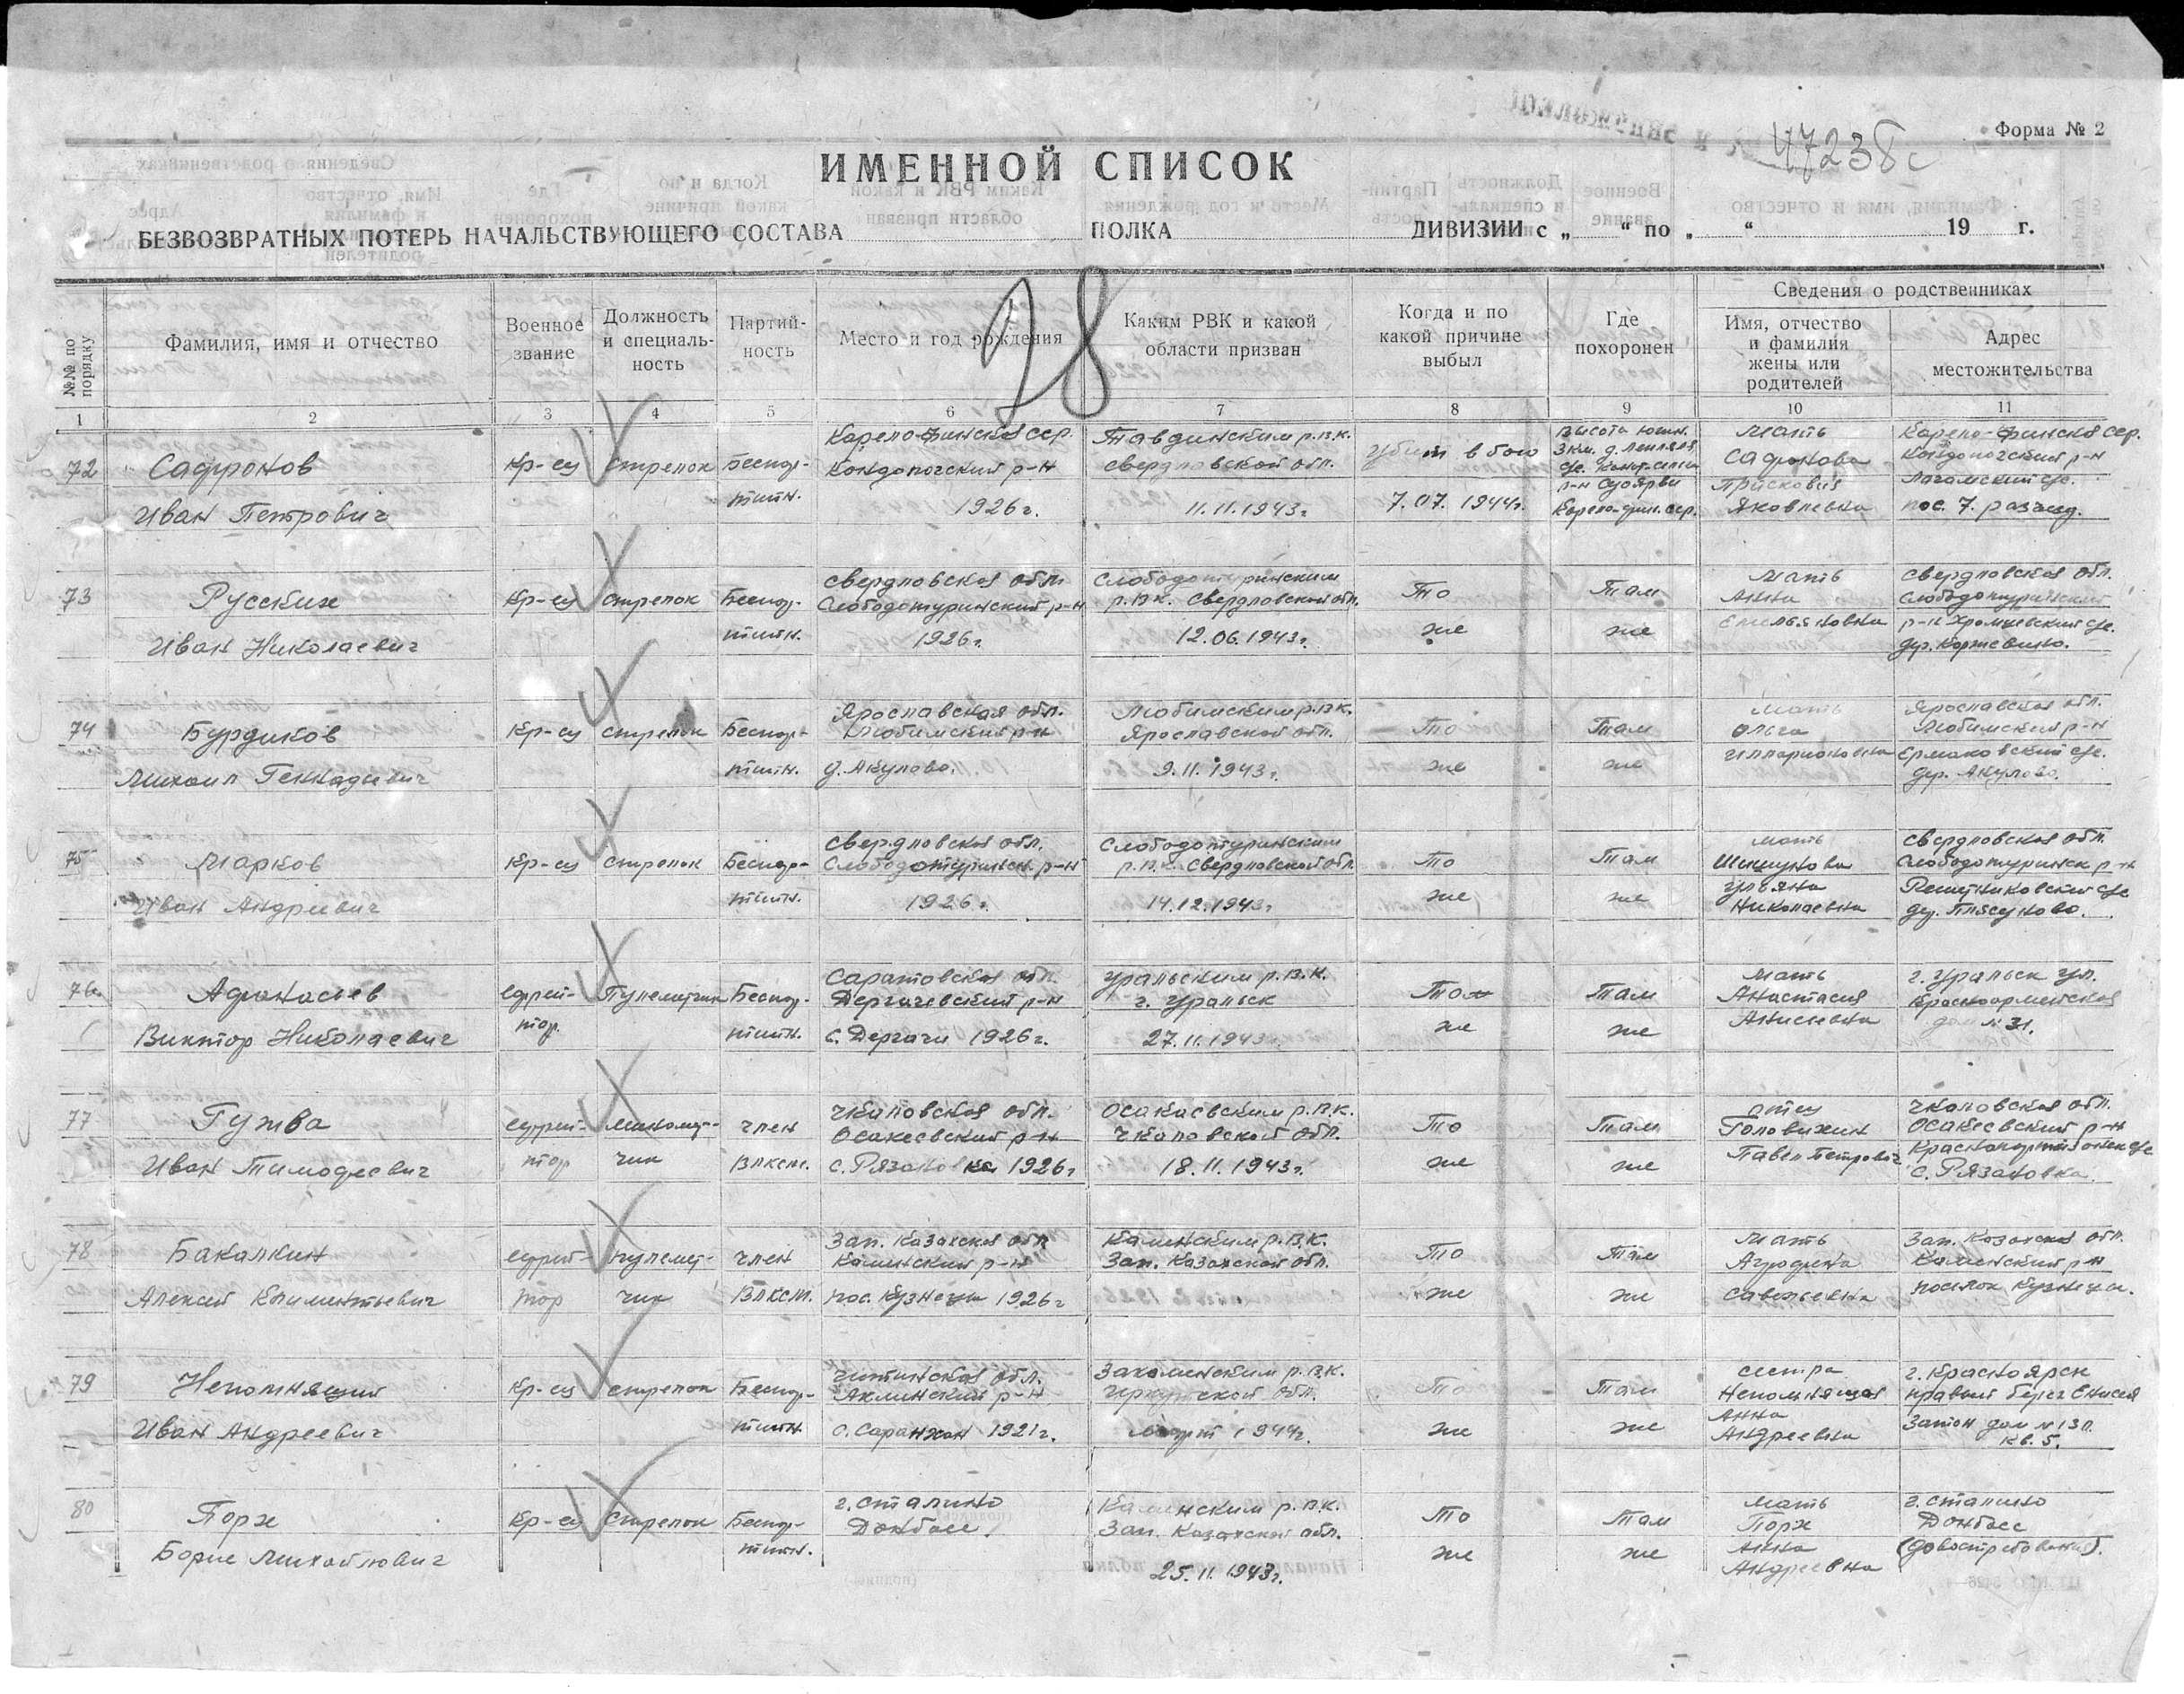 Форма № 2
47238с
ИМЕННОЙ СПИСОК
БЕЗВОЗВРАТНЫХ ПОТЕРЬ НАЧАЛЬСТВУЮЩЕГО СОСТАВА ПОЛКА ДИВИЗИИ с „ “ по „ “ 19 г.
№№ по порядку
Фамилия, имя и отчество
Военное звание
Должность и специаль-ность
Партий-ность
Место и год рождения
Каким РВК и какой области призван
Когда и по какой причине выбыл
Где похоронен
Сведения о родственниках
Имя, отчество и фамилия жены или родителей
Адрес местожительства
1 2 3 4 5 6 7 8 9 10 11
72 Сафронов Кр-ец стрелок Беспар-
Иван Петрович тийн.
Карело-финская сср.
Кондопогский р-н
1926 г.
Тавдинским р.в.к.
свердловской обл.
11.11.1943г
убит в бою
7.07.1944г.
Высота южн.
3 км.
р-н Суоярви
Карело-фин. сср.
Мать
Сафронова
Яковлевна
Карело-финская сср.
Кондопогский р-н
пос. 7. разъезд.
73 Русских Кр-ец стрелок Беспар-
Иван Николаевич тийн.
свердловская обл.
Слободотуринский р-н
1926г.
Слободотуринским
р.в.к. свердловской обл.
12.06.1943г.
То
же
Там
же
Мать
Анна
Емельяновна
свердловская обл.
Слободотуринский
дер.
74 Бурдиков Кр-ец стрелок Беспар-
Михаил Геннадьевич тийн.
Ярославская обл.
Любимский р-н
д. Акулово.
Любимским р.в.к.
Ярославской обл.
9.11.1943г.
То
же
Там
же
Мать
Ольга
Илларионовна
Ярославская обл.
Любимский р-н
Ермаковский с/с.
дер. Акулово.
75 Марков Кр-ец стрелок Беспар-
Иван Андреевич тийн.
свердловская обл.
Слободотуринск. р-н
1926г.
Слободотуринским
р.в.к. свердловской обл
14.12.1943г
То
же
Там
же
мать
Ульяна
Николаевна
свердловская обл.
Слободотуринск р-н
дер.
76 Афанасьев ефрей- Пулеметчик Беспар-
Виктор Николаевич тор. тийн.
Саратовская обл.
Дергачевский р-н
с. Дергачи 1926г.
Уральским р.в.к.
г. Уральск
27.11.1943г.
То
же
Там
же
Мать
Анастасия
г. Уральск ул.
Красноармейская
дом № 31.
77 Гужва ефрей- миномет- член
Иван Тимофеевич тор чик ВЛКСМ.
Чкаловская обл.
Осакеевский р-н
с. Рязановка 1926г
Осакаевским р.в.к.
Чкаловской обл.
18.11.1943г.
То
же
Там
же
отец
Головихин
Павел Петрович
Чкаловская обл.
Осакеевский р-н
с. Рязановка.
78 Бакалкин ефрей- пулемет- член
Алексей Климентьевич тор чик ВЛКСМ.
Зап. Казахская обл
Каменский р-н
пос. Кузнецы 1926г
Каменским р.в.к.
Зап. Казахской обл.
То
же
Там
же
Мать
Агрофена
Савельевна
Зап. Казахская обл.
Каменский р-н
поселок Кузнецы.
79 Непомнящий Кр-ец стрелок Беспар-
Иван Андреевич тийн
Читинская обл.
Акшинский р-н
1921г.
Закаменским р.в.к.
Иркутской обл.
Март 1944г.
То
же
Там
же
сестра
Непомнящая
Анна
Андреевна
г. Красноярск
правый берег Енисея
Затон дом № 13л.
кв. 5.
80 Порх Кр-ец стрелок Беспар-
Борис Михайлович тийн.
г. Сталино
Донбасс.
Каменским р.в.к.
Зап. Казахской обл.
25.11.1943г.
То
же
Там
же
мать
Порх
Анна
Андреевна
г. Сталино
Донбасс
(довостребования).